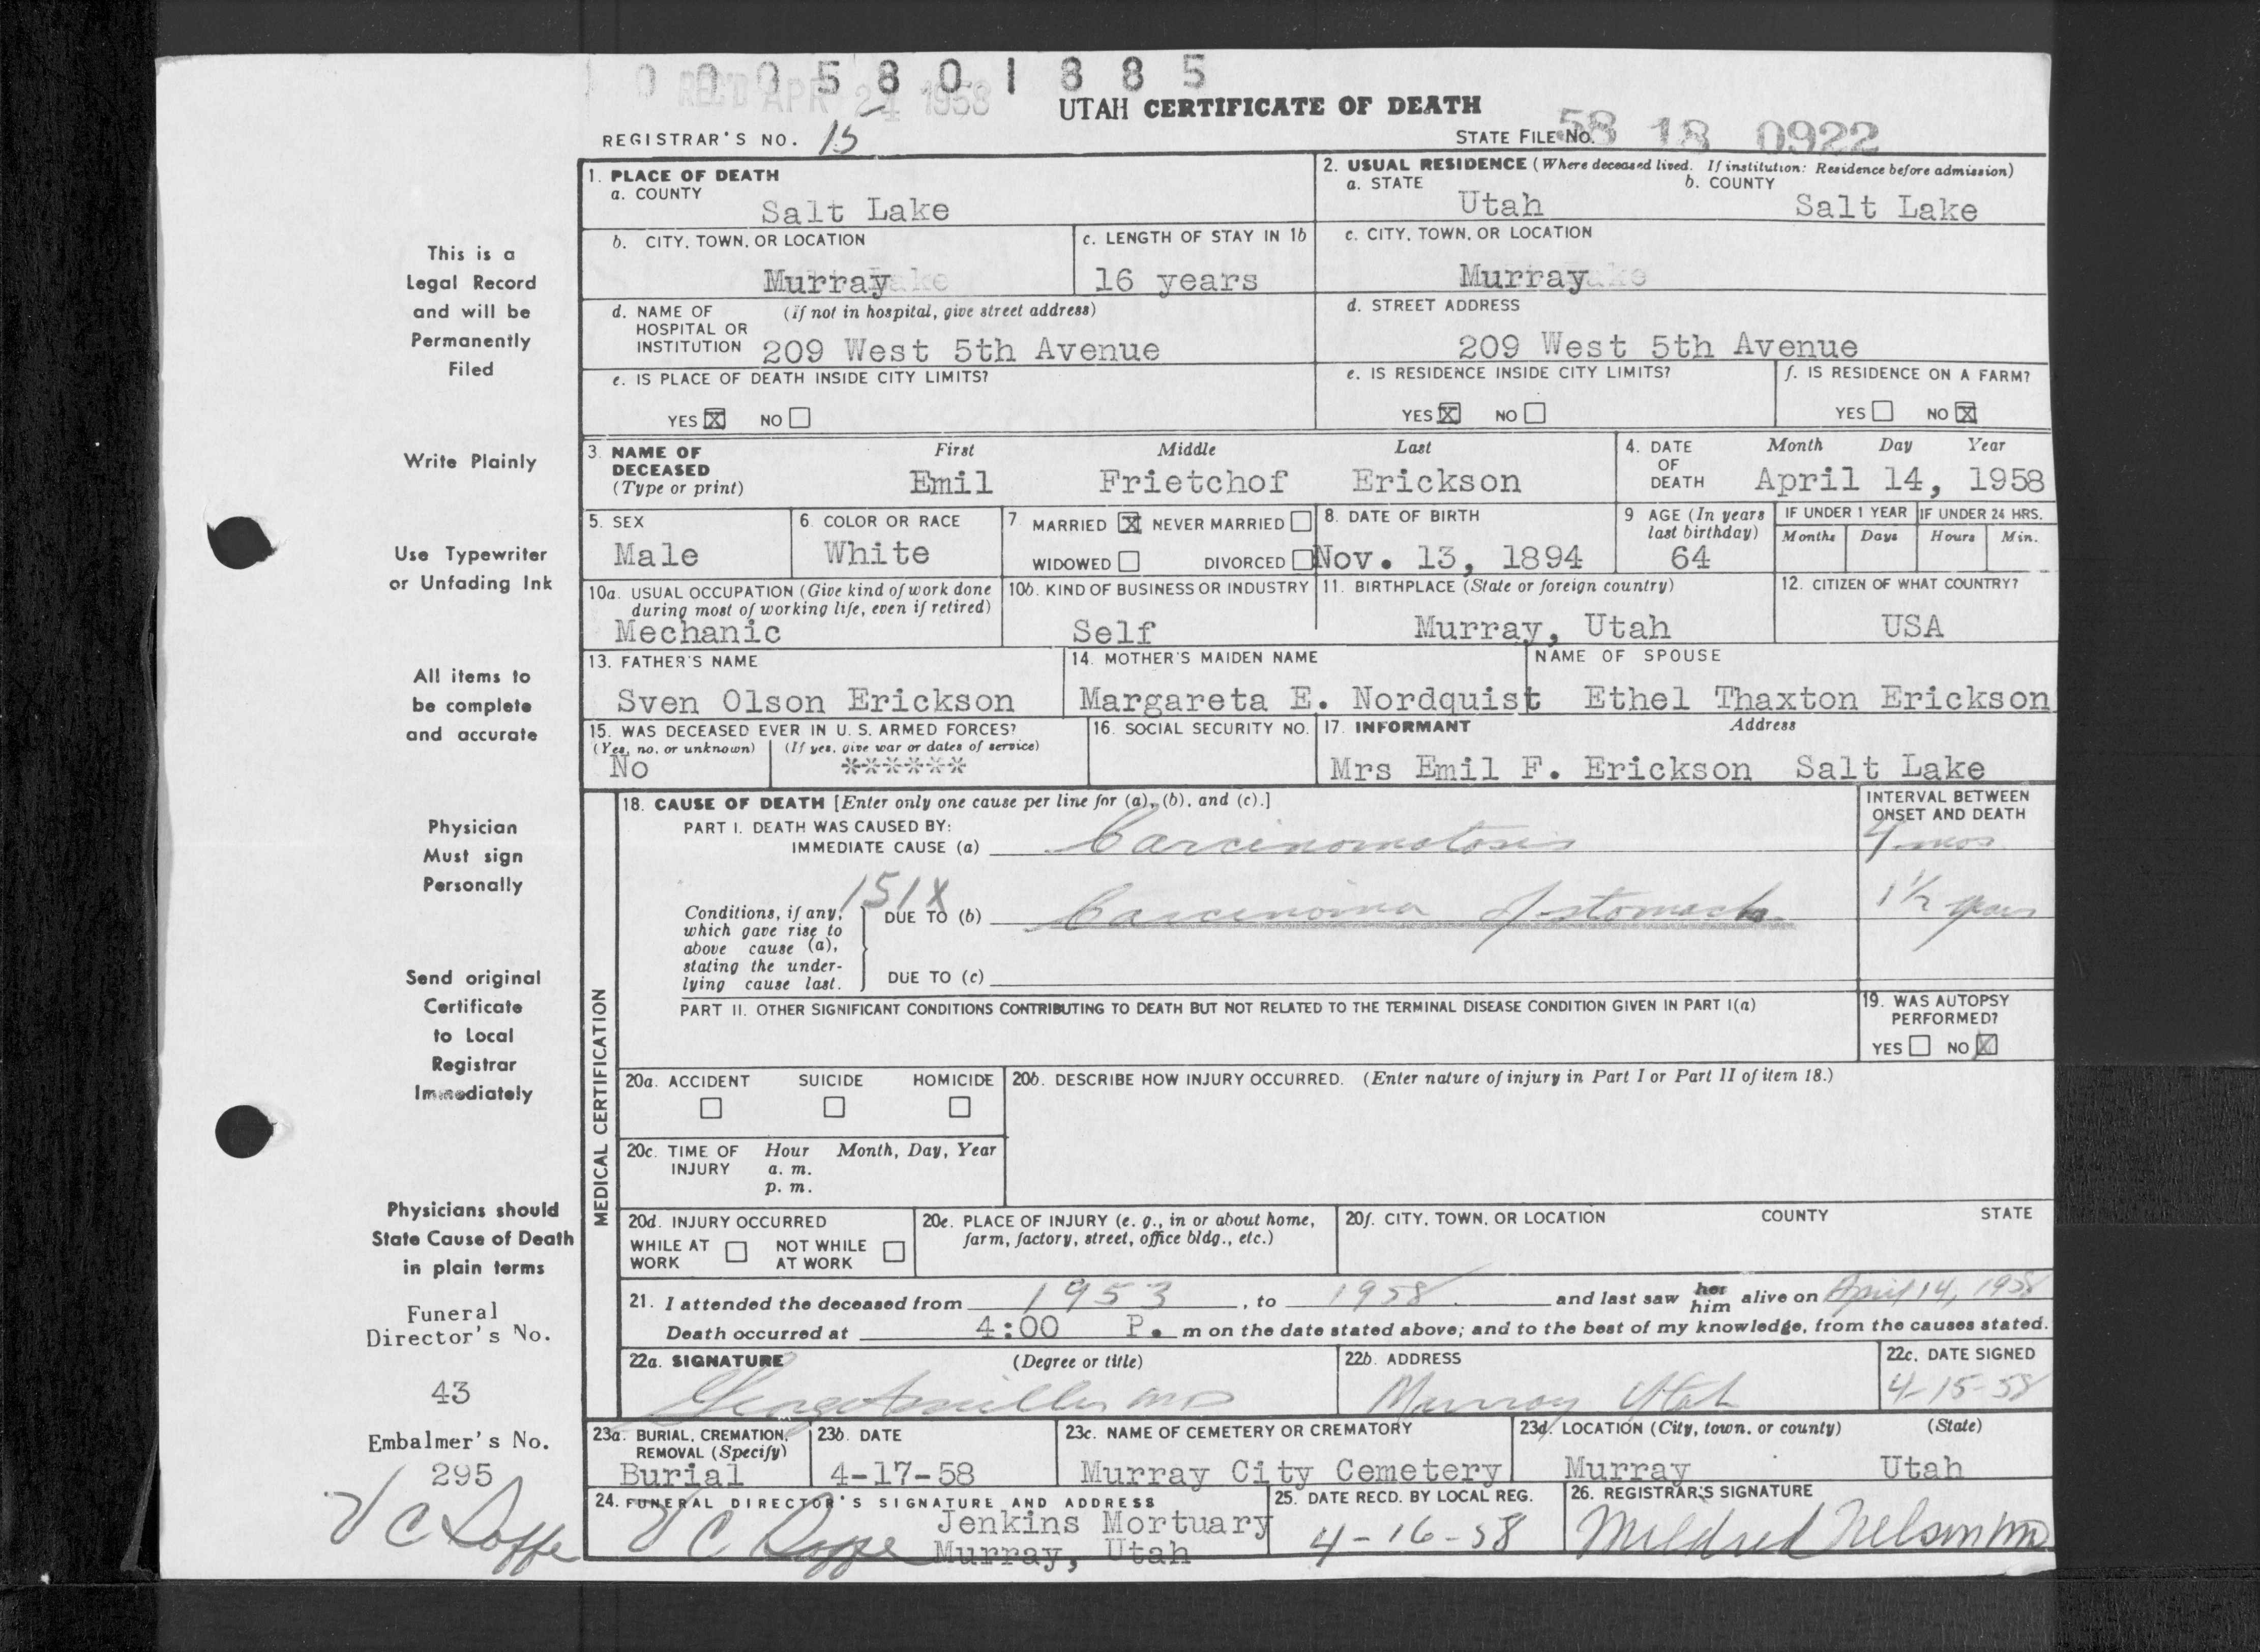 0005801885
REC'D APR 24 1958
UTAH CERTIFICATE OF DEATH
REGISTRAR'S NO. 15
STATE FILE NO. 58 18 0922
This is a
Legal Record
and will be
Permanently
Filed
Write Plainly
Use Typewriter
or Unfading Ink
All items to
be complete
and accurate
Physician
Must sign
Personally
Send original
Certificate
to Local
Registrar
Immediately
Physicians should
State Cause of Death
in plain terms
Funeral
Director's No.
43
Embalmer's No.
295
1. PLACE OF DEATH
a. COUNTY
Salt Lake
2. USUAL RESIDENCE (Where deceased lived. If institution: Residence before admission)
a. STATE
Utah
b. COUNTY
Salt Lake
b. CITY, TOWN, OR LOCATION
Murray
c. LENGTH OF STAY IN 1b
16 years
c. CITY, TOWN, OR LOCATION
Murray
d. NAME OF (If not in hospital, give street address)
HOSPITAL OR
INSTITUTION 209 West 5th Avenue
d. STREET ADDRESS
209 West 5th Avenue
e. IS PLACE OF DEATH INSIDE CITY LIMITS?
YES X NO
e. IS RESIDENCE INSIDE CITY LIMITS?
YES X NO
f. IS RESIDENCE ON A FARM?
YES NO X
3. NAME OF
DECEASED
(Type or print)
First Middle Last
Emil Frietchof Erickson
4. DATE
OF
DEATH
Month Day Year
April 14, 1958
5. SEX
Male
6. COLOR OR RACE
White
7. MARRIED X NEVER MARRIED
WIDOWED DIVORCED
8. DATE OF BIRTH
Nov. 13, 1894
9 AGE (In years
last birthday)
64
IF UNDER 1 YEAR
Months Days
IF UNDER 24 HRS.
Hours Min.
10a. USUAL OCCUPATION (Give kind of work done
during most of working life, even if retired)
Mechanic
10b. KIND OF BUSINESS OR INDUSTRY
Self
11. BIRTHPLACE (State or foreign country)
Murray, Utah
12. CITIZEN OF WHAT COUNTRY?
USA
13. FATHER'S NAME
Sven Olson Erickson
14. MOTHER'S MAIDEN NAME
Margareta E. Nordquist
NAME OF SPOUSE
Ethel Thaxton Erickson
15. WAS DECEASED EVER IN U. S. ARMED FORCES?
(Yes, no, or unknown) (If yes, give war or dates of service)
No ******
16. SOCIAL SECURITY NO.
17. INFORMANT Address
Mrs Emil F. Erickson Salt Lake
MEDICAL CERTIFICATION
18. CAUSE OF DEATH [Enter only one cause per line for (a), (b), and (c).]
INTERVAL BETWEEN
ONSET AND DEATH
PART I. DEATH WAS CAUSED BY:
IMMEDIATE CAUSE (a) Carcinomatosis 4 mos
151X
Conditions, if any,
which gave rise to
above cause (a),
stating the under-
lying cause last.
DUE TO (b) Carcinoma of stomach 1½ years
DUE TO (c)
PART II. OTHER SIGNIFICANT CONDITIONS CONTRIBUTING TO DEATH BUT NOT RELATED TO THE TERMINAL DISEASE CONDITION GIVEN IN PART I(a)
19. WAS AUTOPSY
PERFORMED?
YES NO X
20a. ACCIDENT SUICIDE HOMICIDE
20b. DESCRIBE HOW INJURY OCCURRED. (Enter nature of injury in Part I or Part II of item 18.)
20c. TIME OF Hour Month, Day, Year
INJURY a. m.
p. m.
20d. INJURY OCCURRED
WHILE AT NOT WHILE
WORK AT WORK
20e. PLACE OF INJURY (e. g., in or about home,
farm, factory, street, office bldg., etc.)
20f. CITY, TOWN, OR LOCATION COUNTY STATE
21. I attended the deceased from 1953, to 1958 and last saw her him alive on April 14, 1958
Death occurred at 4:00 P. m on the date stated above; and to the best of my knowledge, from the causes stated.
22a. SIGNATURE (Degree or title)
George A Miller MD
22b. ADDRESS
Murray Utah
22c. DATE SIGNED
4-15-58
23a. BURIAL, CREMATION,
REMOVAL (Specify)
Burial
23b. DATE
4-17-58
23c. NAME OF CEMETERY OR CREMATORY
Murray City Cemetery
23d. LOCATION (City, town, or county) (State)
Murray Utah
24. FUNERAL DIRECTOR'S SIGNATURE AND ADDRESS
Jenkins Mortuary
Murray, Utah
25. DATE RECD. BY LOCAL REG.
4-16-58
26. REGISTRAR'S SIGNATURE
Mildred Nelson MD